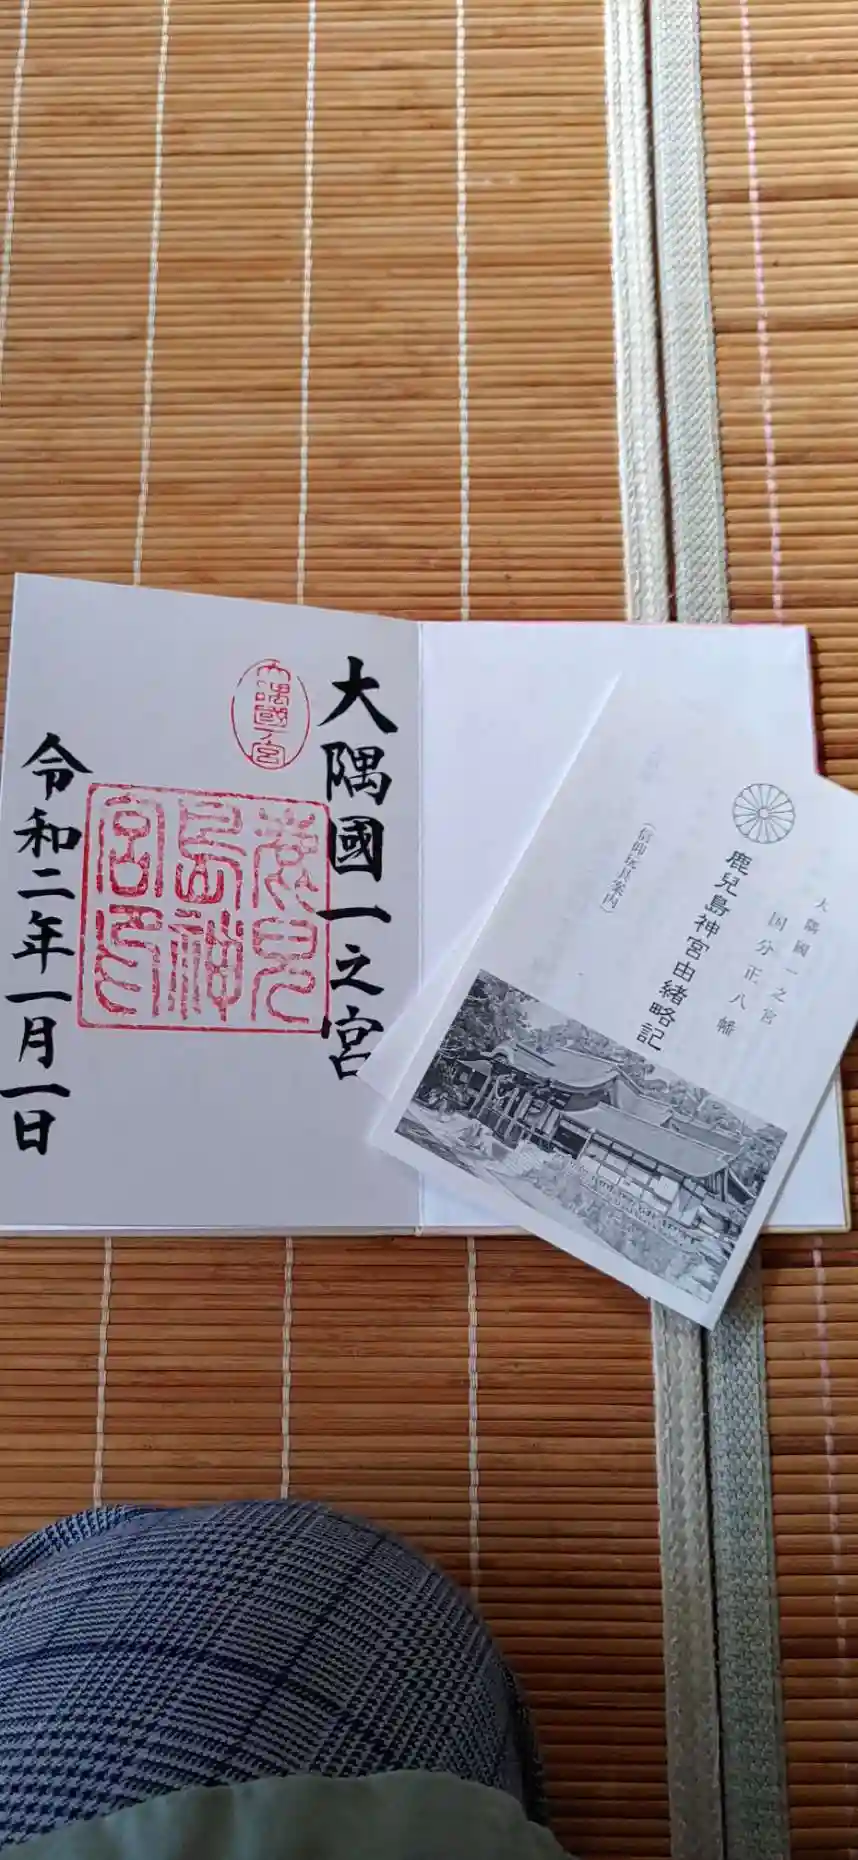 大隅國一之宮
大隅國一宮
鹿兒島神宮印
令和二年一月一日
大隅國一之宮
国分正八幡
鹿兒島神宮由緒略記
(信仰玩具案内)